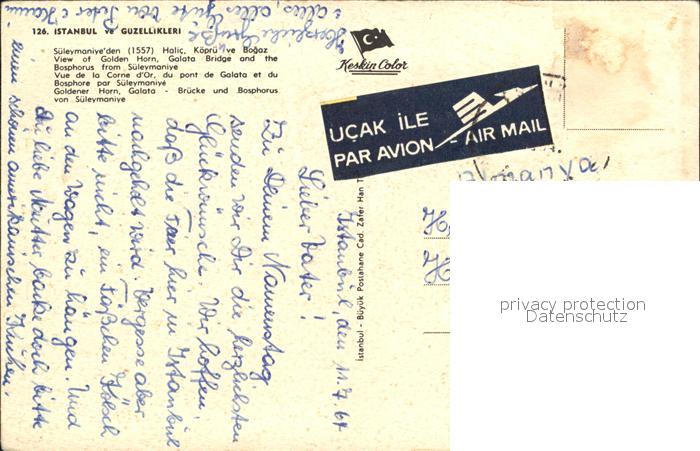 126. ISTANBUL ve GUZELLIKLERI
Süleymaniye'den (1557) Haliç, Köprü ve Boğaz
View of Golden Horn, Galata Bridge and the
Bosphorus from Süleymaniye
Vue de la Corne d'Or, du pont de Galata et du
Bosphore par Süleymaniye
Goldener Horn, Galata - Brücke und Bosphorus
von Süleymaniye
Keskin Color
UÇAK İLE
PAR AVION - AIR MAIL
İstanbul - Büyük Postahane Cad. Zafer Han
Istanbul, den 11.7.64
Lieber Vater!
Zu Deinem Namenstag
senden wir Dir die herzlichsten
Glückwünsche. Wir hoffen,
daß die Feier hier in Istanbul
nachgeholt wird. Vergesse aber
bitte nicht, ein Fäßchen Kölsch
an den Wagen zu hängen. Und
Du liebe Mutter backe doch bitte
einen schönen amerikanischen Kuchen.
Herzliche Grüße
alles, alles Gute von Peter
privacy protection
Datenschutz